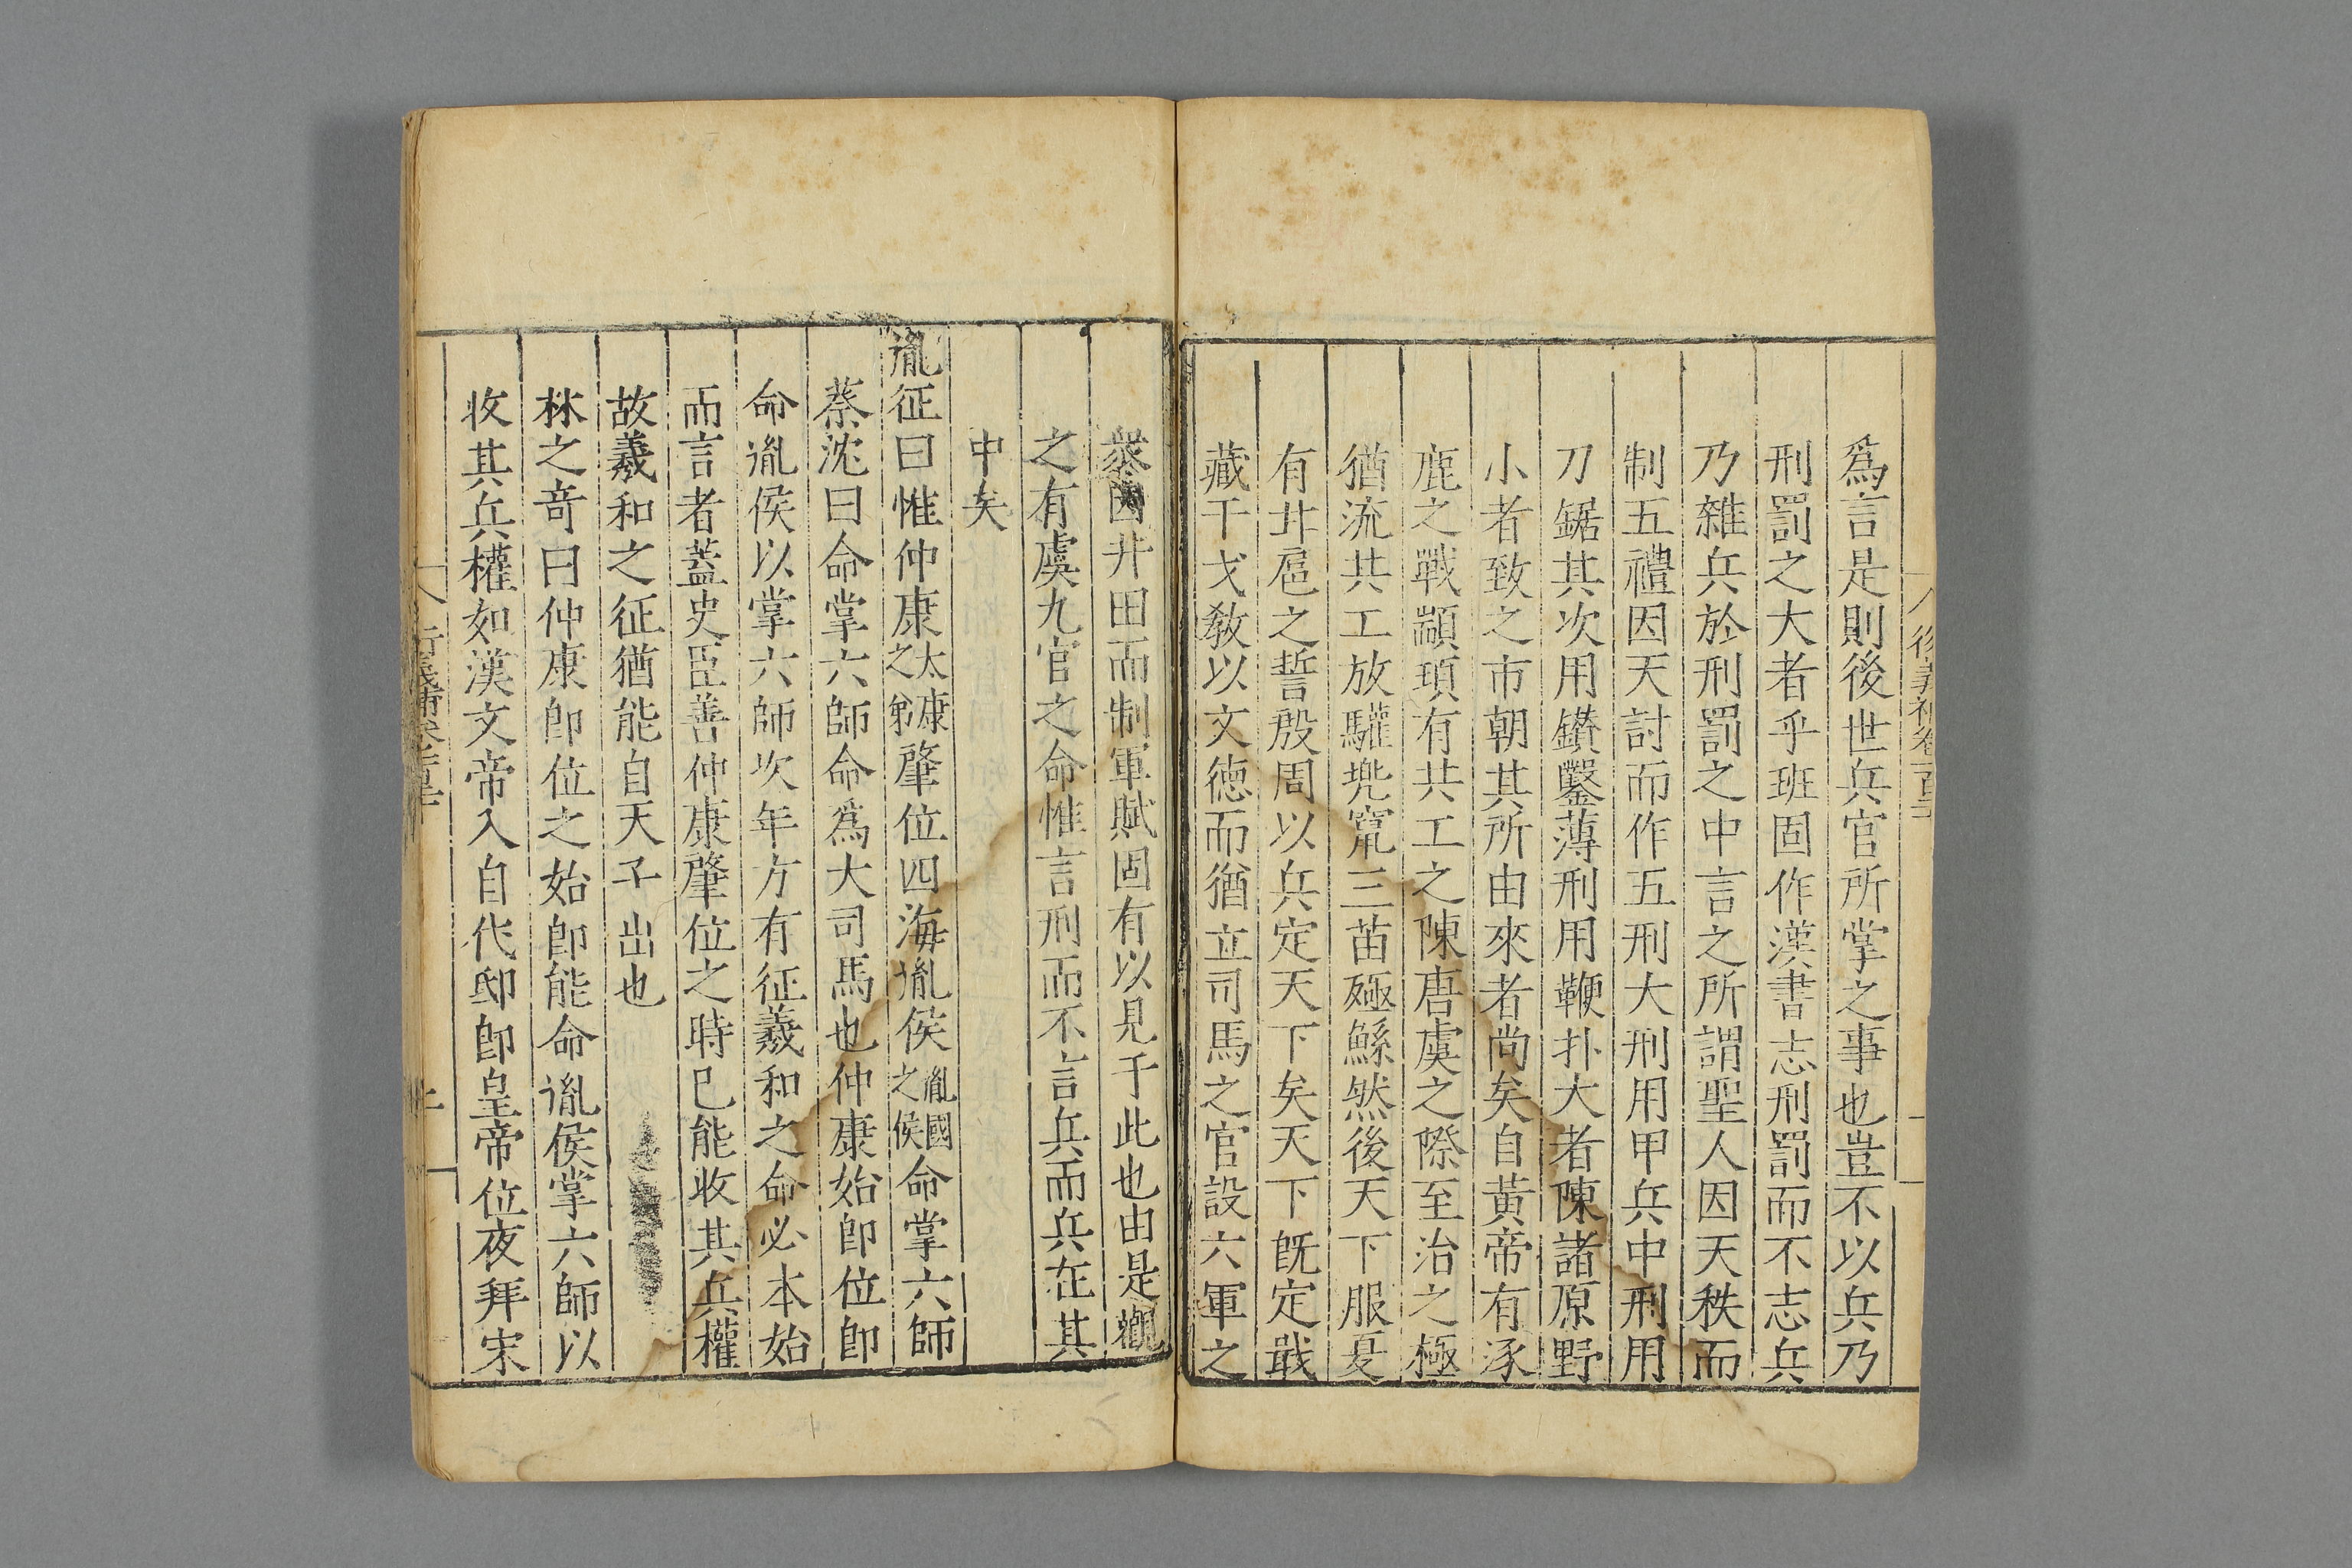 爲言是則後世兵官所掌之事也豈不以兵乃
刑罰之大者乎班固作漢書志刑罰而不志兵
乃雜兵於刑罰之中言之所謂聖人因天秩而
制五禮因天討而作五刑大刑用甲兵中刑用
刀鋸其次用鑽鑿薄刑用鞭扑大者陳諸原野
小者致之市朝其所由來者尚矣自黃帝有涿
鹿之戰顓頊有共工之陳唐虞之際至治之極
猶流共工放驩兠竄三苗殛鯀然後天下服夏
有甘扈之誓殷周以兵定天下矣天下旣定戢
藏干戈敎以文德而猶立司馬之官設六軍之
衆因井田而制軍賦固有以見于此也由是觀
之有虞九官之命惟言刑而不言兵而兵在其
中矣
胤征曰惟仲康太康之弟肈位四海胤侯胤國之侯命掌六師
蔡沈曰命掌六師命爲大司馬也仲康始卽位卽
命胤侯以掌六師次年方有征羲和之命必本始
而言者蓋史臣善仲康肈位之時已能收其兵權
故羲和之征猶能自天子出也
林之奇曰仲康卽位之始卽能命胤侯掌六師以
收其兵權如漢文帝入自代邸卽皇帝位夜拜宋